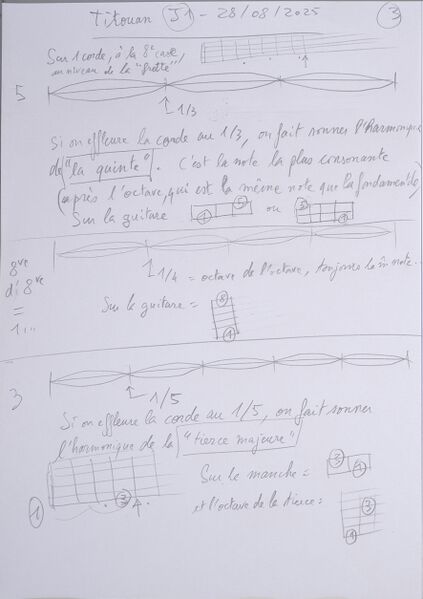 Titouan J1 - 28/08/2025 3
Sur 1 corde, à la 8e case,
au niveau de la "frette",
5
1/3
Si on effleure la corde au 1/3, on fait sonner l'harmonique
de "la quinte". C'est la note la plus consonante
(après l'octave, qui est la même note que la fondamentale)
Sur la guitare 1 5 ou 1
8ve
d'8ve
=
1...
1/4 = octave de l'octave, toujours la m note...
Sur la guitare = 8 1
3
1/5
Si on effleure la corde au 1/5, on fait sonner
l'harmonique de la "tierce majeure"
1 3 4.
Sur le manche = 3 1
et l'octave de la tierce : 3 1